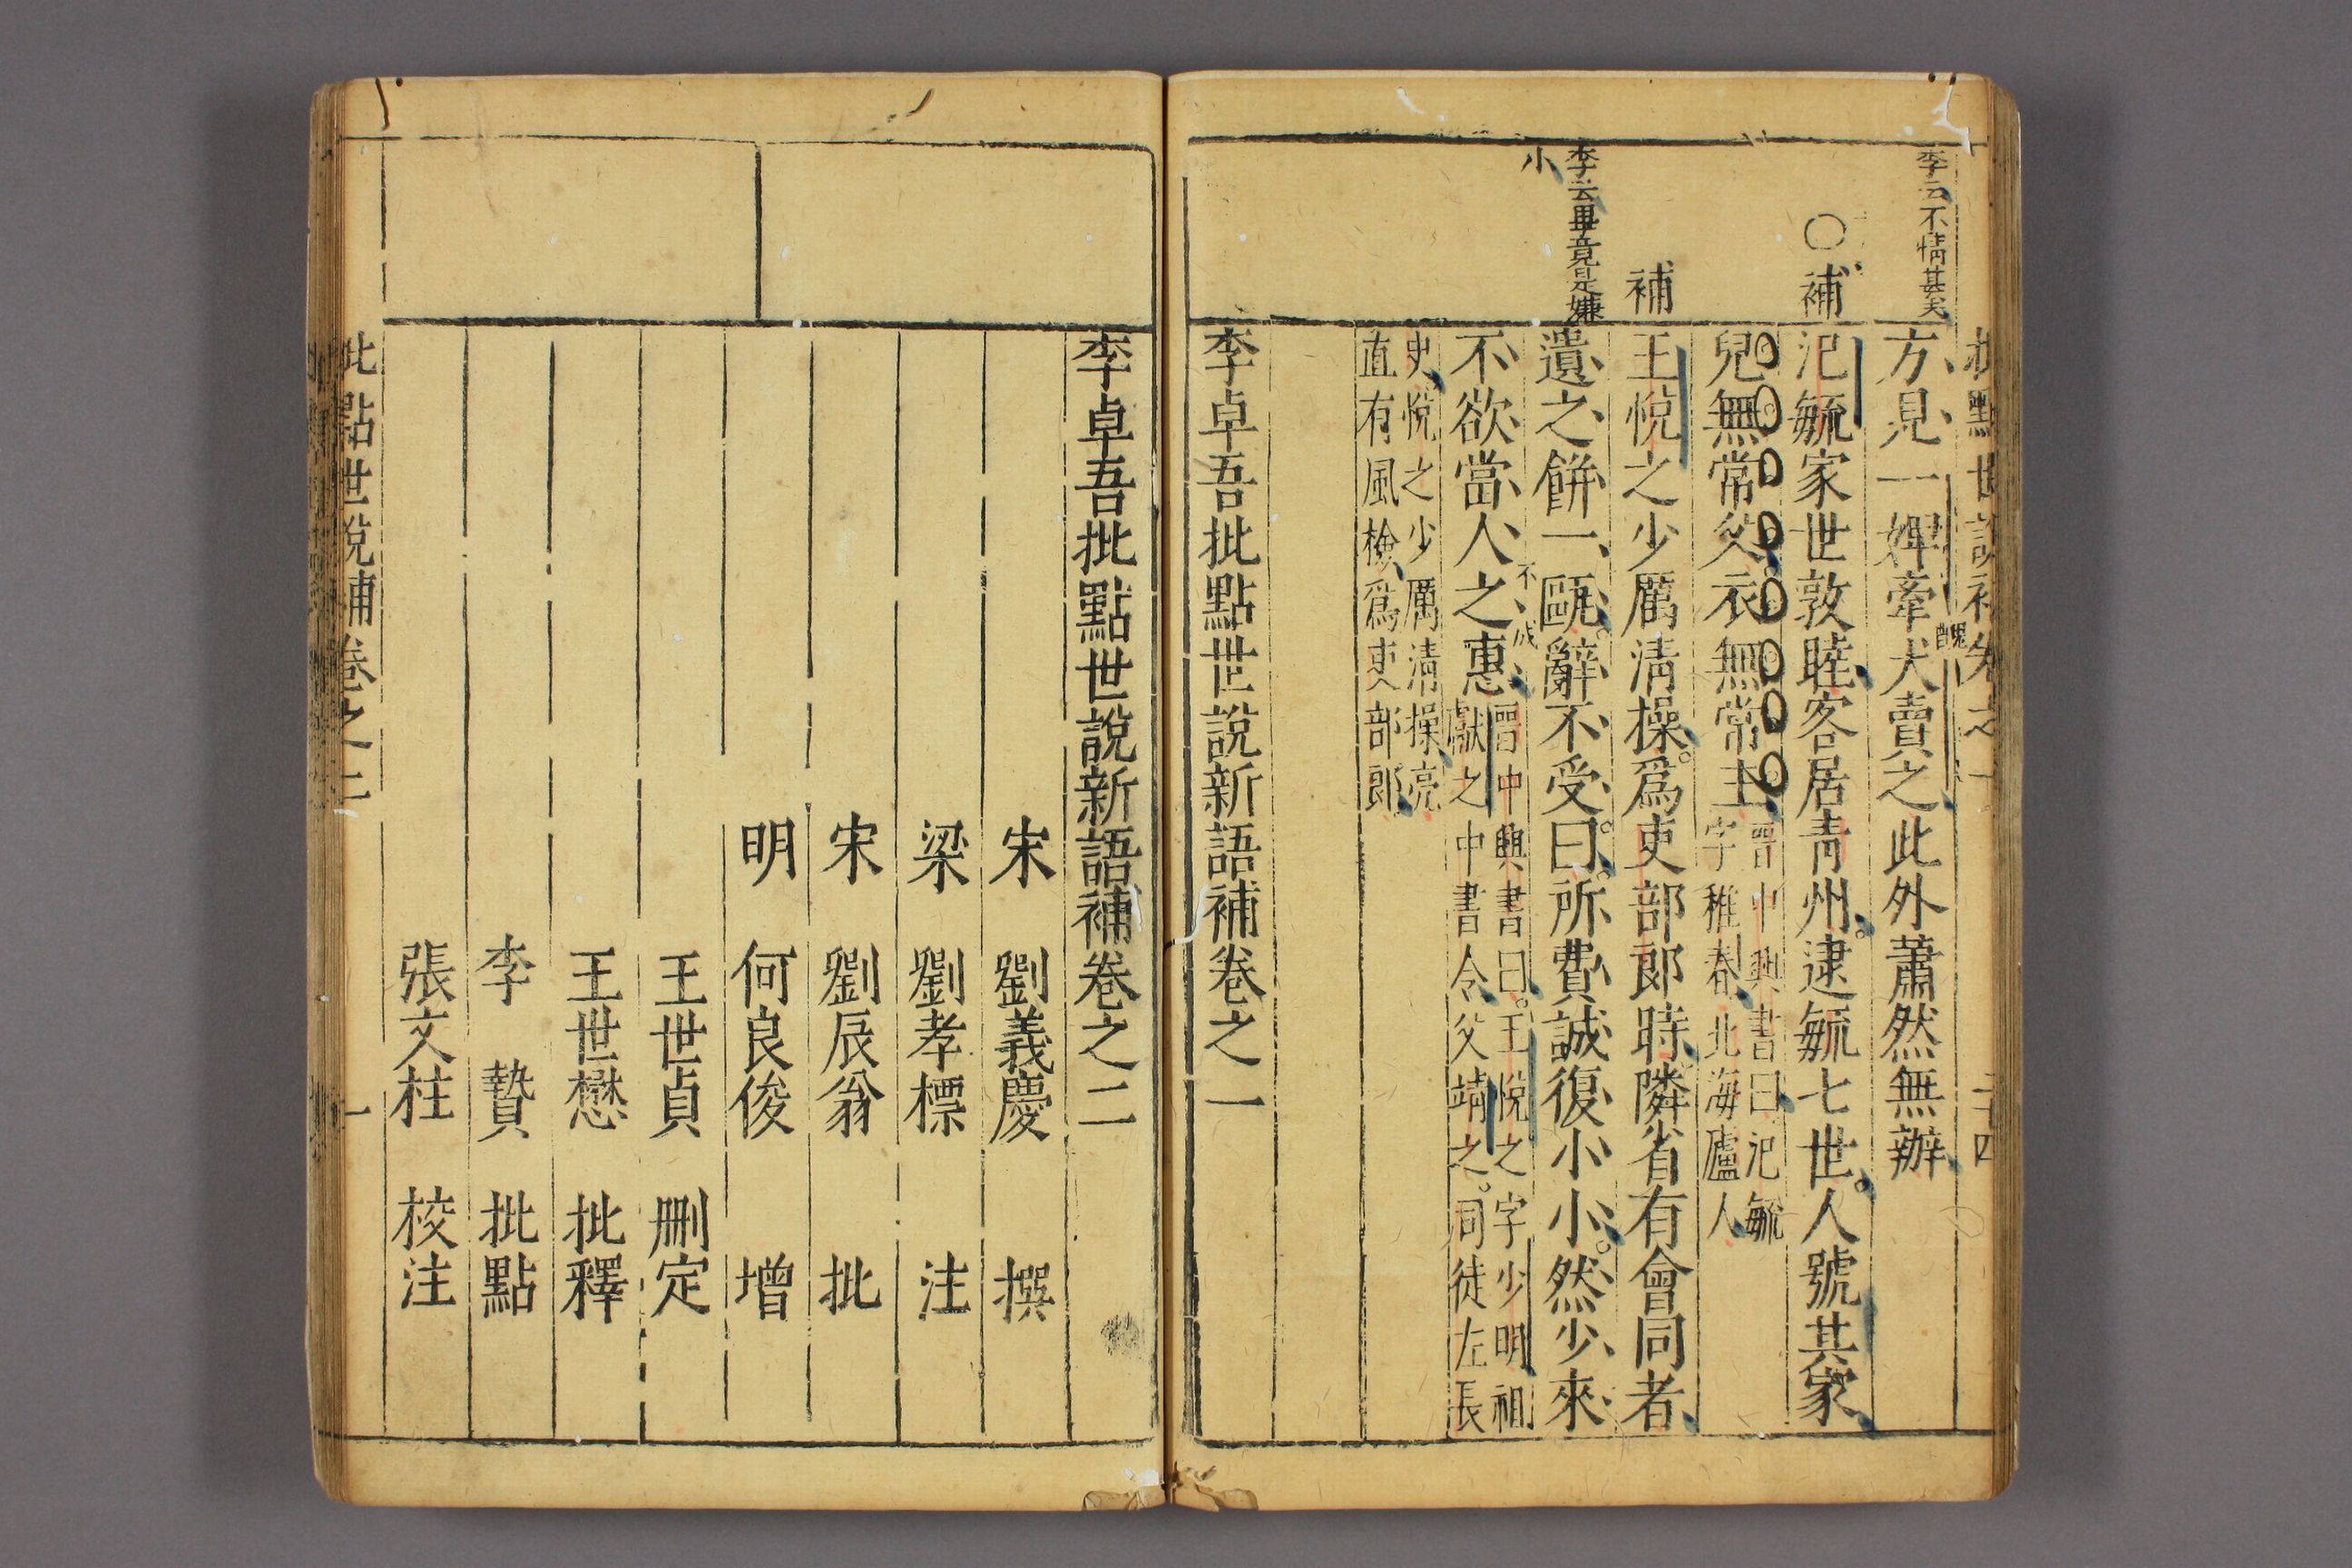 李云不情甚矣
方見一婢牽犬賣之此外蕭然無辦
醜
○補
氾毓家世敦睦客居青州逮毓七世人號其家
兒無常父衣無常主
晉中興書曰氾毓
字稚春北海廬人
補
王悅之少厲清操爲吏部郎時隣省有會同者
李云畢竟是嫌
小
遺之餅一甌辭不受曰所費誠復小小然少來
不欲當人之惠
不成
晉中興書曰王悅之字少明祖
獻之中書令父靖之司徒左長
史悅之少厲清操亮
直有風檢爲吏部郎
李卓吾批點世說新語補卷之一
李卓吾批點世說新語補卷之二
宋 劉義慶 撰
梁 劉孝標 注
宋 劉辰翁 批
明 何良俊 增
王世貞 刪定
王世懋 批釋
李贄 批點
張文柱 校注
批點世說補卷之二 一